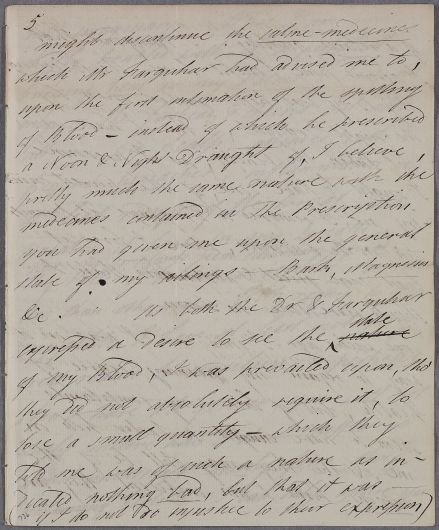 5
might discontinue the saline-medicines
which Mr Farquhar had advised me to,
upon the first intimation of the spitting
of Blood – instead of which he prescribed
a Noon & Night Draught of, I believe,
pretty much the same nature with the
medicines contained in the Prescription
you had given me upon the general
state of my ailings – Bark, Magnesia
&c. As both the Dr & Farquhar
expressed a desire to see the state
of my Blood, I was prevailed upon, tho'
they did not absolutely require it, to
lose a small quantity – which they
told me was of such a nature as in-
dicated nothing bad, but that it was
(if I do not do injustice to their expression)